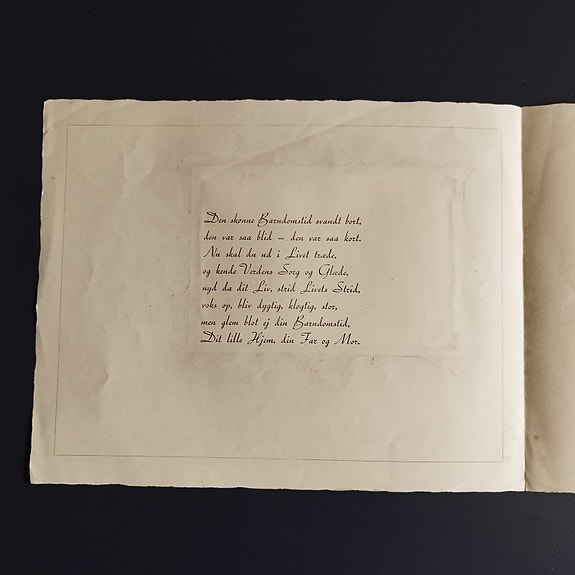 Den skønne Barndomstid svandt bort,
den var saa blid – den var saa kort.
Nu skal du ud i Livet træde,
og kende Verdens Sorg og Glæde,
nyd da dit Liv, strid Livets Strid,
voks op, bliv dygtig, klogtig, stor,
men glem blot ej din Barndomstid,
Dit lille Hjem, din Far og Mor.